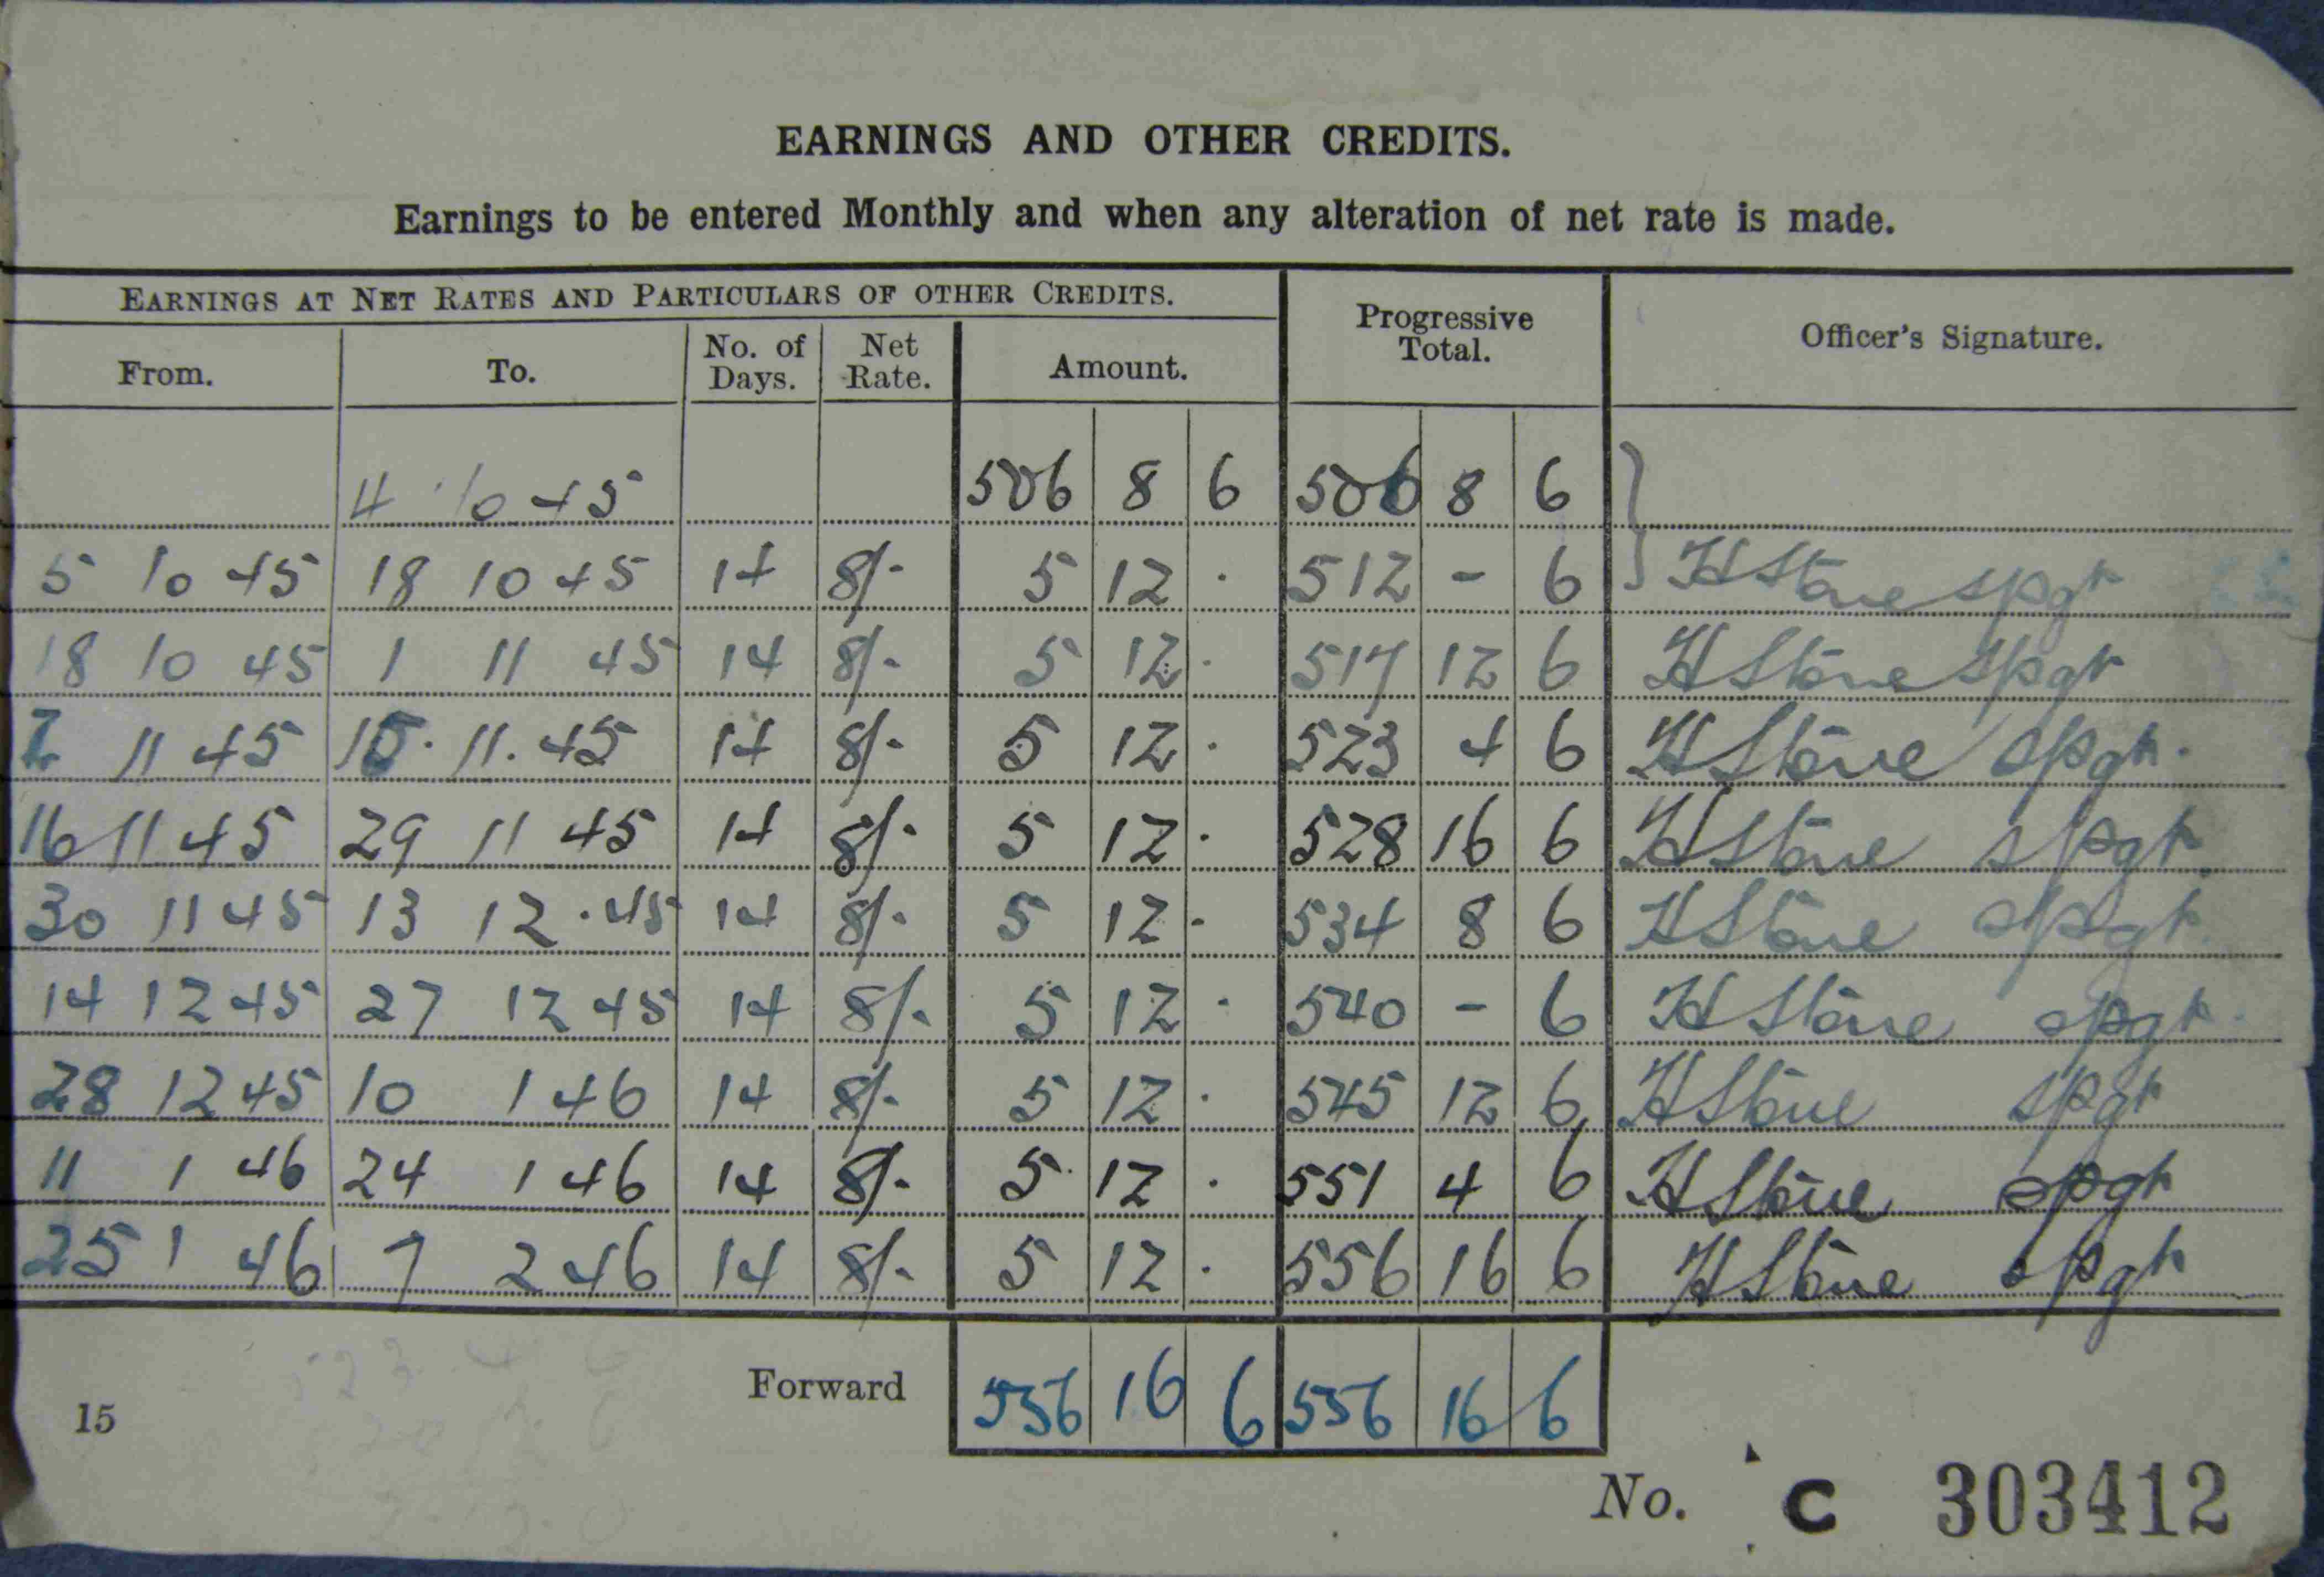 EARNINGS AND OTHER CREDITS.
Earnings to be entered Monthly and when any alteration of net rate is made.
EARNINGS AT NET RATES AND PARTICULARS OF OTHER CREDITS. Progressive Total. Officer's Signature.
From. To. No. of Days. Net Rate. Amount.
4 10 45 506 8 6 506 8 6
5 10 45 18 10 45 14 8/- 5 12 · 512 - 6 HStone spgt
18 10 45 1 11 45 14 8/- 5 12 · 517 12 6 HStone spgt
2 11 45 15. 11. 45 14 8/- 5 12 · 523 4 6 HStone spgt.
16 11 45 29 11 45 14 8/- 5 12 · 528 16 6 HStone spgt.
30 11 45 13 12 . 45 14 8/- 5 12 · 534 8 6 HStone spgt.
14 12 45 27 12 45 14 8/- 5 12 · 540 - 6 HStone spgt.
28 12 45 10 1 46 14 8/- 5 12 · 545 12 6 HStone spgt
11 1 46 24 1 46 14 8/- 5 12 · 551 4 6 HStone spgt
25 1 46 7 2 46 14 8/- 5 12 · 556 16 6 HStone spgt
Forward 556 16 6 556 16 6
15
No. C 303412